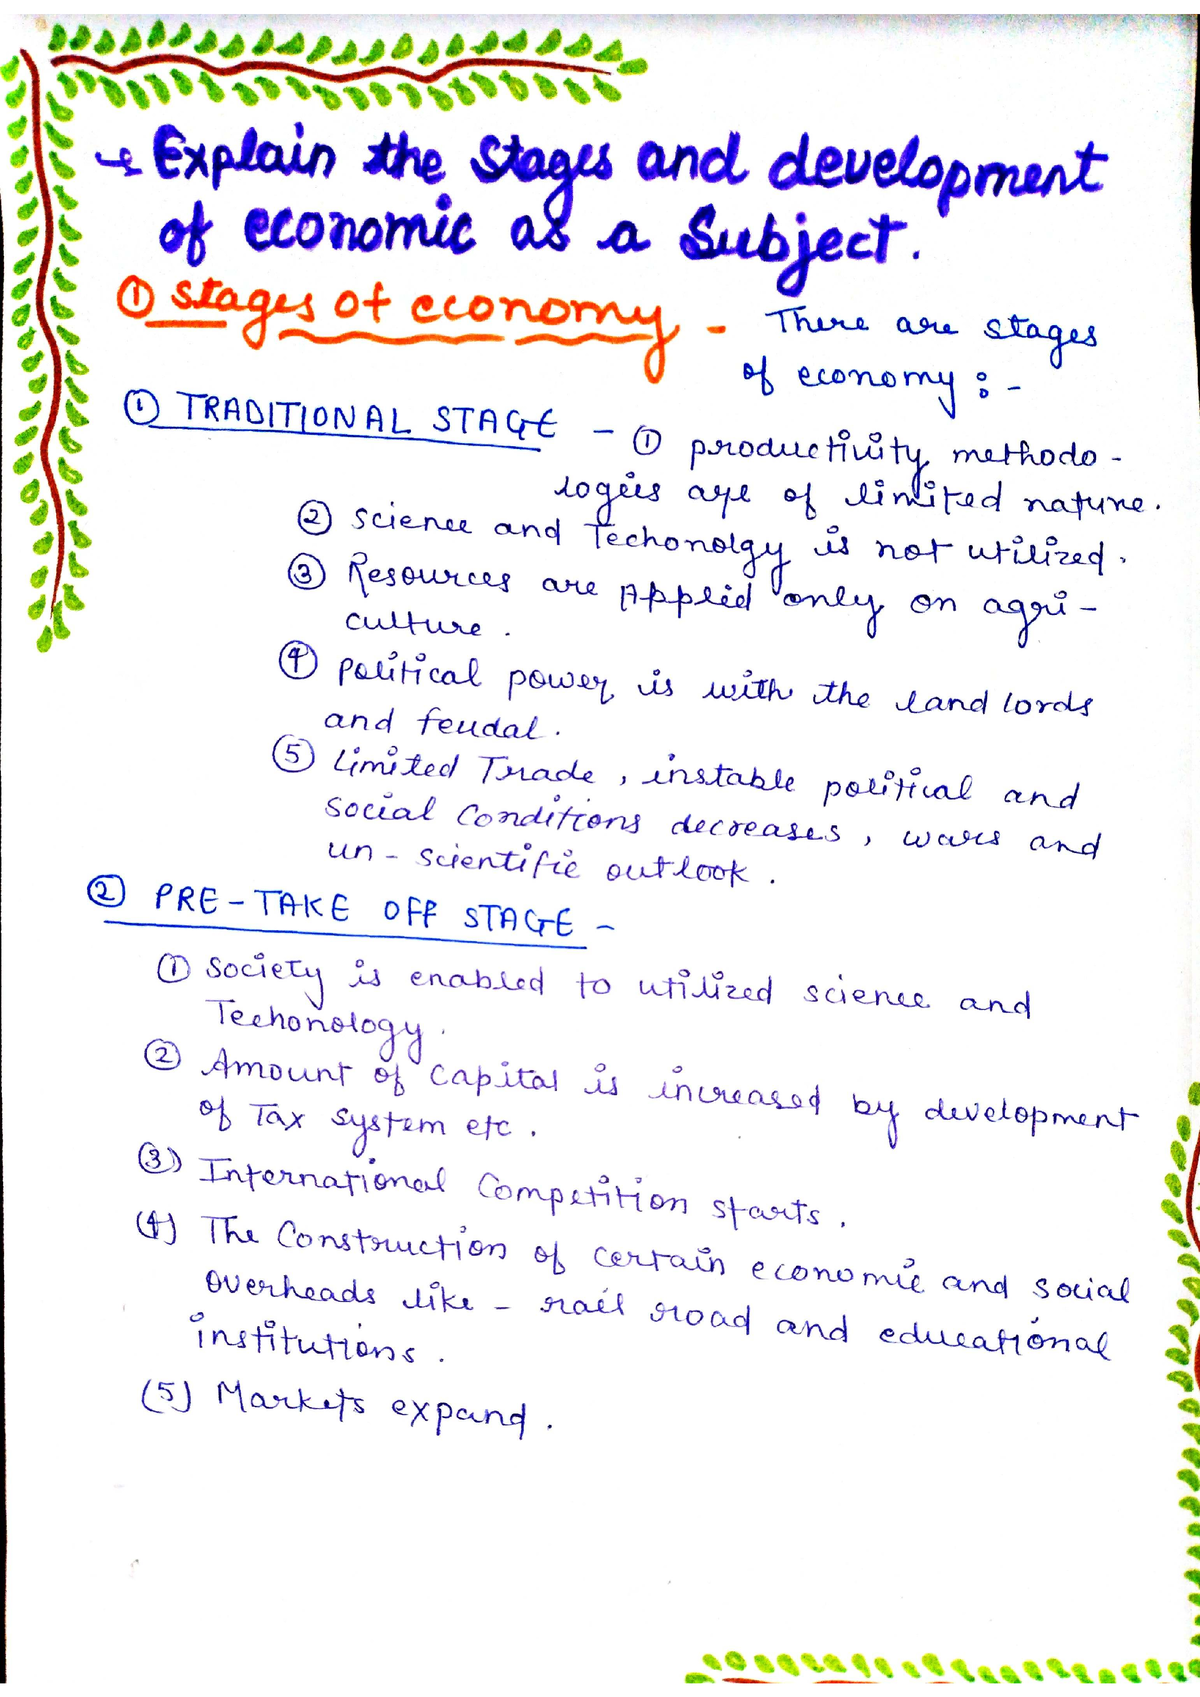 Explain the Stages and development
of economic as a Subject.
① Stages of economy - There are stages
of economy :-
① TRADITIONAL STAGE - ① productivity methodo-
logies are of limited nature.
② Science and Techonolgy is not utilized.
③ Resources are Applied only on agri-
culture.
④ Political power is with the land lords
and feudal.
⑤ Limited Trade, instable political and
Social Conditions decreases, wars and
un-scientific outlook.
② PRE-TAKE OFF STAGE -
① Society is enabled to utilized science and
Techonology.
② Amount of Capital is increased by development
of Tax system etc.
(3) International Competition starts.
(4) The Construction of certain economic and social
overheads like - rail road and educational
institutions.
(5) Markets expand.